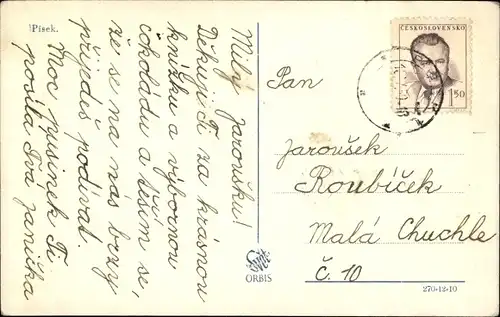 Písek.
Milý Jaroušku!
Děkuji Ti za krásnou
knížku a výbornou
čokoládu a těším se,
že se na nás brzy
přijedeš podívat.
Moc pusinek Ti
posílá Tvá Janička
ČESKOSLOVENSKO
1.50
Pan
Jaroušek
Roubíček
Malá Chuchle
č. 10
ORBIS
270-12-10